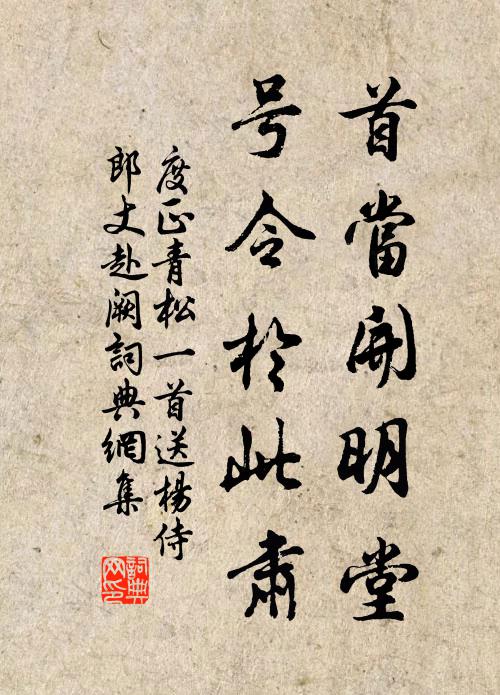 首當開明堂
号令於此肅
度正青松一首送楊侍
郎丈赴闕詞典網集
詞典
网印